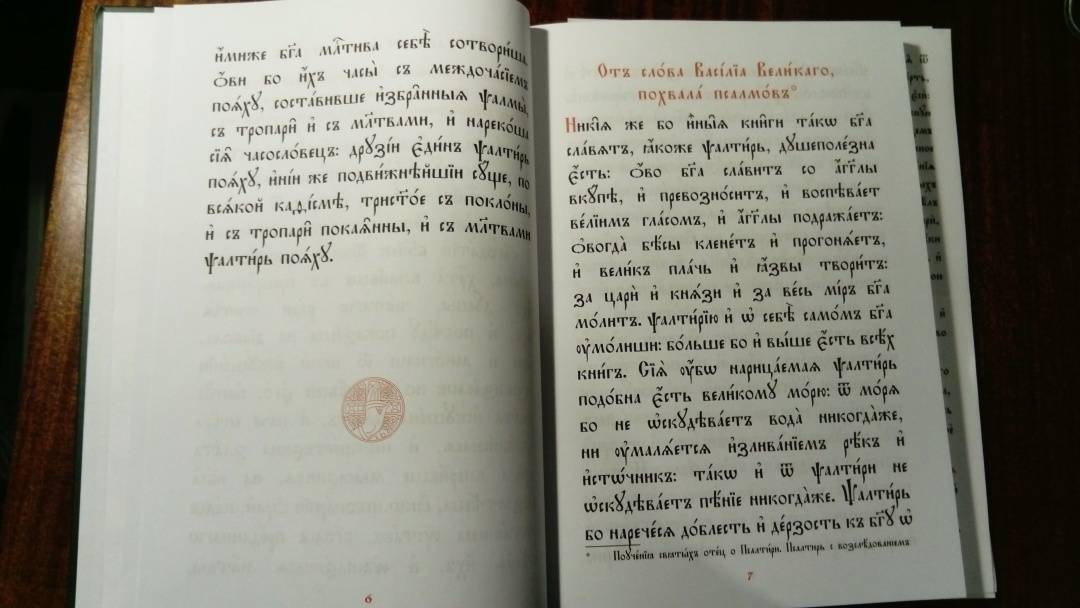 и҆́миже бг҃а мл҃тива себѣ̀ сотвори́ша.
ѻ҆́ви бо и҆́хъ часы̀ съ междоча́сїемъ
поѧ́хꙋ, соста́вивше и҆збра̑нныѧ ѱалмы̀,
съ тропарѝ и҆ съ мл҃твами, и҆ нареко́ша
сїѧ̑ часосло́вецъ: дрꙋзі́и є҆ди́нъ ѱалти́рь
поѧ́хꙋ, и҆ні́и же подви́жнѣйшїи сꙋ́ще, по
всѧ́кой каді́смѣ, трист҃о́е съ покло́ны,
и҆ съ тропарѝ покаѧ̑нны, и҆ съ мл҃твами
ѱалти́рь поѧ́хꙋ.
6
Отъ сло́ва Васі́лїа Вели́каго,
похвала̀ псалмо́въ*
Никі̑ѧ же бо и҆ны̑ѧ кни̑ги та́кѡ бг҃а
сла́вѧтъ, ꙗ҆́коже ѱалти́рь, дꙋшеполе́зна
є҆́сть: ѻ҆́во бг҃а сла́витъ со а҆́гг҃лы
вкꙋ́пѣ, и҆ превозно́ситъ, и҆ воспѣва́ет
ве́лїимъ гла́сомъ, и҆ а҆́гг҃лы подража́етъ:
ѻ҆вогда̀ бѣ́сы клене́тъ и҆ прогонѧ́етъ,
и҆ вели́къ пла́чь и҆ ꙗ҆́звы твори́тъ:
за цари̑ и҆ кнѧ̑зи и҆ за ве́сь мі́ръ бг҃а
мо́литъ. Ѱалти́рїю и҆ ѡ҆ себѣ̀ само́мъ бг҃а
ᲂу҆мо́лиши: бо́льше бо и҆ вы́ше є҆́сть всѣ́хъ
кни́гъ. Сїѧ̀ ᲂу҆̀бѡ нарица́емаѧ ѱалти́рь
подо́бна є҆́сть вели́комꙋ мо́рю: ѿ мо́рѧ
бо не ѡ҆скꙋдѣва́етъ вода̀ никогда́же,
ни ᲂу҆малѧ́етсѧ и҆злива́нїемъ рѣ́къ и҆
и҆сто́чникъ: та́кѡ и҆ ѿ ѱалти́ри не
ѡ҆скꙋдѣва́етъ пѣ́нїе никогда́же. Ѱалти́рь
бо нарече́сѧ до́блесть и҆ де́рзость къ бг҃ꙋ ѡ҆
* Поꙋче́нїѧ свѧты́хъ ѻте́ц о Псалти́ри. Псалтирь с возслѣ́дованием
7